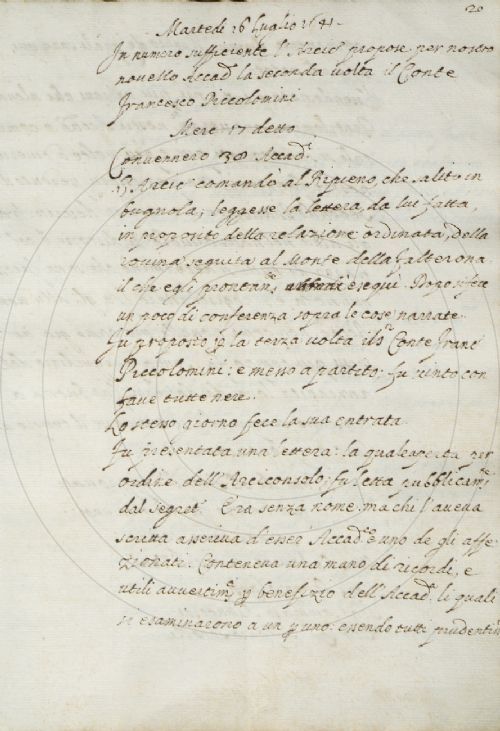 20
Martedì 16 Luglio 1641.
In numero sufficiente l'Arcic.º propose per nostro
novello Accad.º la seconda volta il Conte
Francesco Piccolomini
Merc. 17 detto
Convennero 38 Accad.ⁱ
L'Arcic.º comandò al Ripieno, che salito in
bugnola, leggesse la lettera da lui fatta,
in proposito della relazione ordinata, della
rovina seguita al Monte della Falterona
il che egli prontam.ᵉ eseguì. Dopo si fece
un poco di conferenza sopra le cose narrate
Fu proposto p la terza volta il S.ʳ Conte Franc.º
Piccolomini: e messo a partito: fu vinto con
fave tutte nere.
Lo stesso giorno fece la sua entrata
Fu presentata una lettera: la quale aperta per
ordine dell'Arciconsolo, fu letta pubblicam.ᵉ
dal segret.º Era senza nome, ma chi l'aveva
scritta asseriva d'esser Accad.º e uno de gli affe-
zionati. Conteneva una mano di ricordi, e
utili avvertim.ⁱ p benefizio dell'Accad.ª li quali
si esaminarono a un p uno: essendo tutti prudentiss